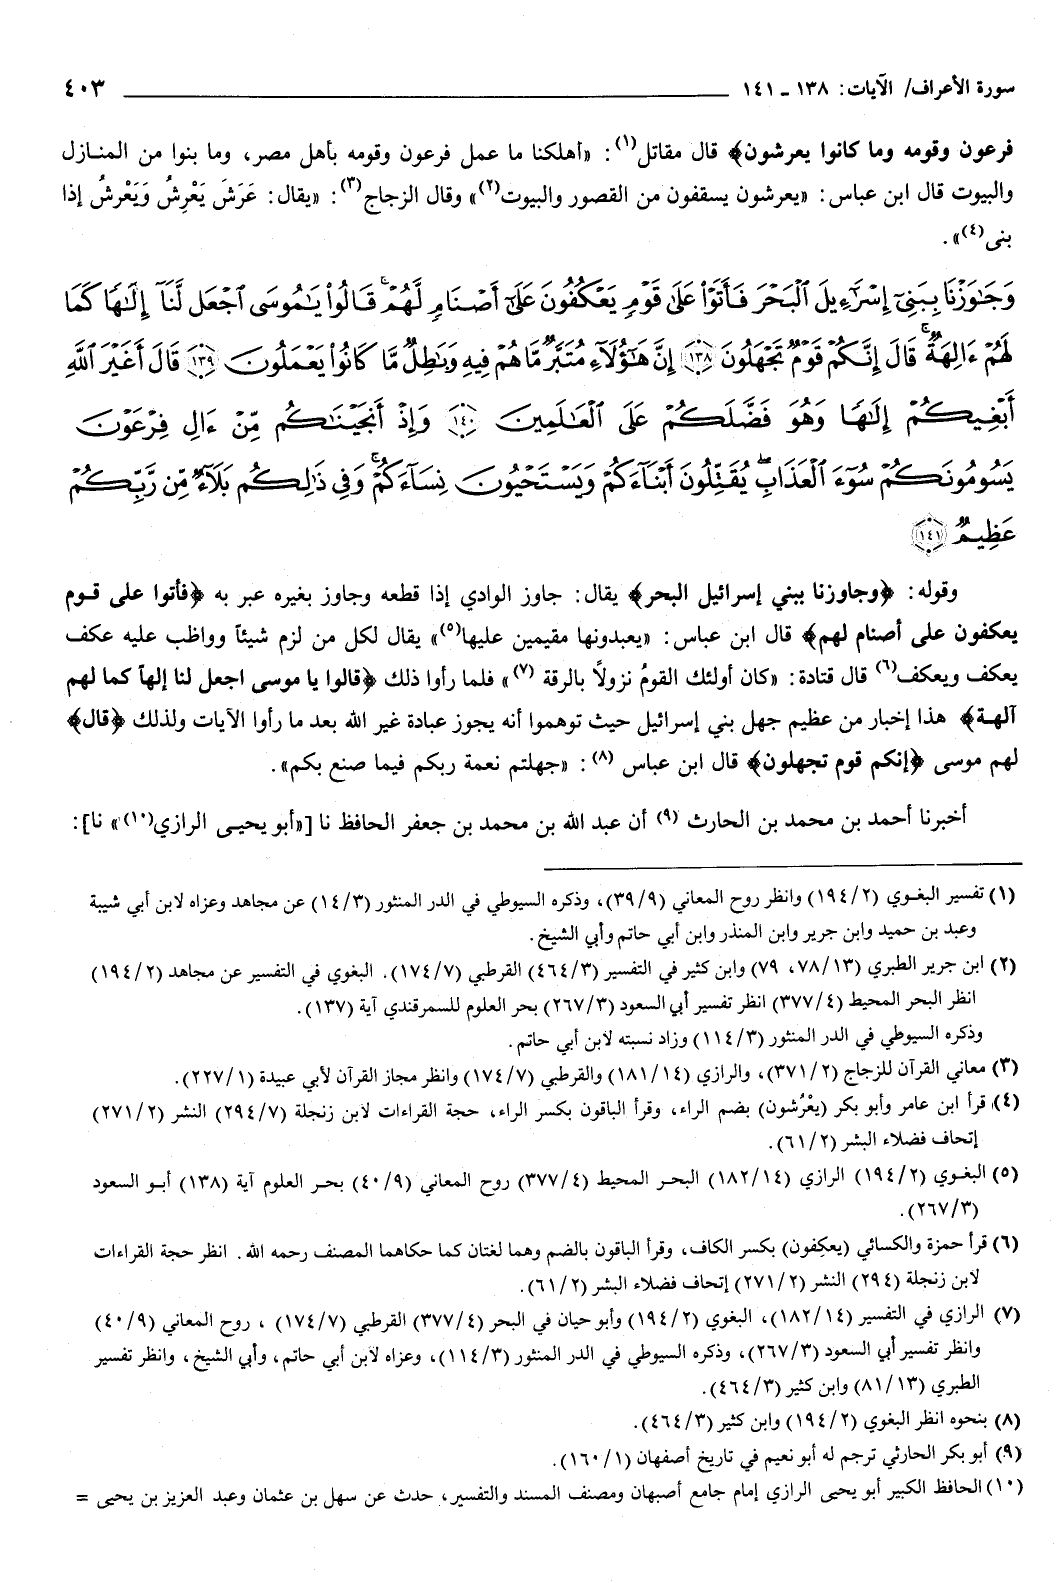 سورة الأعراف/ الآيات: ١٣٨ ـ ١٤١ ٤٠٣
فرعون وقومه وما كانوا يعرشون﴾ قال مقاتل(١): «أهلكنا ما عمل فرعون وقومه بأهل مصر، وما بنوا من المنازل
والبيوت قال ابن عباس: «يعرشون يسقفون من القصور والبيوت(٢)» وقال الزجاج(٣): «يقال: عَرَشَ يَعْرِشُ وَيَعْرشُ إذا
بنى(٤)».
وَجَٰوَزْنَا بِبَنِىٓ إِسْرَٰٓءِيلَ ٱلْبَحْرَ فَأَتَوْا۟ عَلَىٰ قَوْمٍ يَعْكُفُونَ عَلَىٰٓ أَصْنَامٍ لَّهُمْ ۚ قَالُوا۟ يَٰمُوسَى ٱجْعَل لَّنَآ إِلَٰهًا كَمَا
لَهُمْ ءَالِهَةٌ ۚ قَالَ إِنَّكُمْ قَوْمٌ تَجْهَلُونَ ١٣٨ إِنَّ هَٰٓؤُلَآءِ مُتَبَّرٌ مَّا هُمْ فِيهِ وَبَٰطِلٌ مَّا كَانُوا۟ يَعْمَلُونَ ١٣٩ قَالَ أَغَيْرَ ٱللَّهِ
أَبْغِيكُمْ إِلَٰهًا وَهُوَ فَضَّلَكُمْ عَلَى ٱلْعَٰلَمِينَ ١٤٠ وَإِذْ أَنجَيْنَٰكُم مِّنْ ءَالِ فِرْعَوْنَ
يَسُومُونَكُمْ سُوٓءَ ٱلْعَذَابِ ۖ يُقَتِّلُونَ أَبْنَآءَكُمْ وَيَسْتَحْيُونَ نِسَآءَكُمْ ۚ وَفِى ذَٰلِكُم بَلَآءٌ مِّن رَّبِّكُمْ
عَظِيمٌ ١٤١
وقوله: ﴿وجاوزنا ببني إسرائيل البحر﴾ يقال: جاوز الوادي إذا قطعه وجاوز بغيره عبر به ﴿فأتوا على قوم
يعكفون على أصنام لهم﴾ قال ابن عباس: «يعبدونها مقيمين عليها(٥)» يقال لكل من لزم شيئاً وواظب عليه عكف
يعكف ويعكف(٦) قال قتادة: «كان أولئك القومُ نزولاً بالرقة (٧)» فلما رأوا ذلك ﴿قالوا يا موسى اجعل لنا إلهاً كما لهم
آلهة﴾ هذا إخبار من عظيم جهل بني إسرائيل حيث توهموا أنه يجوز عبادة غير الله بعد ما رأوا الآيات ولذلك ﴿قال﴾
لهم موسى ﴿إنكم قوم تجهلون﴾ قال ابن عباس (٨): «جهلتم نعمة ربكم فيما صنع بكم».
أخبرنا أحمد بن محمد بن الحارث (٩) أن عبد الله بن محمد بن جعفر الحافظ نا [«أبو يحيى الرازي(١٠)» نا]:
(١) تفسير البغوي (١٩٤/٢) وانظر روح المعاني (٣٩/٩)، وذكره السيوطي في الدر المنثور (١٤/٣) عن مجاهد وعزاه لابن أبي شيبة
وعبد بن حميد وابن جرير وابن المنذر وابن أبي حاتم وأبي الشيخ.
(٢) ابن جرير الطبري (٧٨/١٣، ٧٩) وابن كثير في التفسير (٤٦٤/٣) القرطبي (١٧٤/٧). البغوي في التفسير عن مجاهد (١٩٤/٢)
انظر البحر المحيط (٣٧٧/٤) انظر تفسير أبي السعود (٢٦٧/٣) بحر العلوم للسمرقندي آية (١٣٧).
وذكره السيوطي في الدر المنثور (١١٤/٣) وزاد نسبته لابن أبي حاتم.
(٣) معاني القرآن للزجاج (٣٧١/٢)، والرازي (١٨١/١٤) والقرطبي (١٧٤/٧) وانظر مجاز القرآن لأبي عبيدة (٢٢٧/١).
(٤) قرأ ابن عامر وأبو بكر (يعْرُشون) بضم الراء، وقرأ الباقون بكسر الراء، حجة القراءات لابن زنجلة (٢٩٤/٧) النشر (٢٧١/٢)
إتحاف فضلاء البشر (٦١/٢).
(٥) البغوي (١٩٤/٢) الرازي (١٨٢/١٤) البحر المحيط (٣٧٧/٤) روح المعاني (٤٠/٩) بحر العلوم آية (١٣٨) أبو السعود
(٢٦٧/٣).
(٦) قرأ حمزة والكسائي (يعكِفون) بكسر الكاف، وقرأ الباقون بالضم وهما لغتان كما حكاهما المصنف رحمه الله. انظر حجة القراءات
لابن زنجلة (٢٩٤) النشر (٢٧١/٢) إتحاف فضلاء البشر (٦١/٢).
(٧) الرازي في التفسير (١٨٢/١٤)، البغوي (١٩٤/٢) وأبو حيان في البحر (٣٧٧/٤) القرطبي (١٧٤/٧) ، روح المعاني (٤٠/٩)
وانظر تفسير أبي السعود (٢٦٧/٣)، وذكره السيوطي في الدر المنثور (١١٤/٣)، وعزاه لابن أبي حاتم، وأبي الشيخ، وانظر تفسير
الطبري (٨١/١٣) وابن كثير (٤٦٤/٣).
(٨) بنحوه انظر البغوي (١٩٤/٢) وابن كثير (٤٦٤/٣).
(٩) أبو بكر الحارثي ترجم له أبو نعيم في تاريخ أصفهان (١٦٠/١).
(١٠) الحافظ الكبير أبو يحيى الرازي إمام جامع أصبهان ومصنف المسند والتفسير، حدث عن سهل بن عثمان وعبد العزيز بن يحيى =